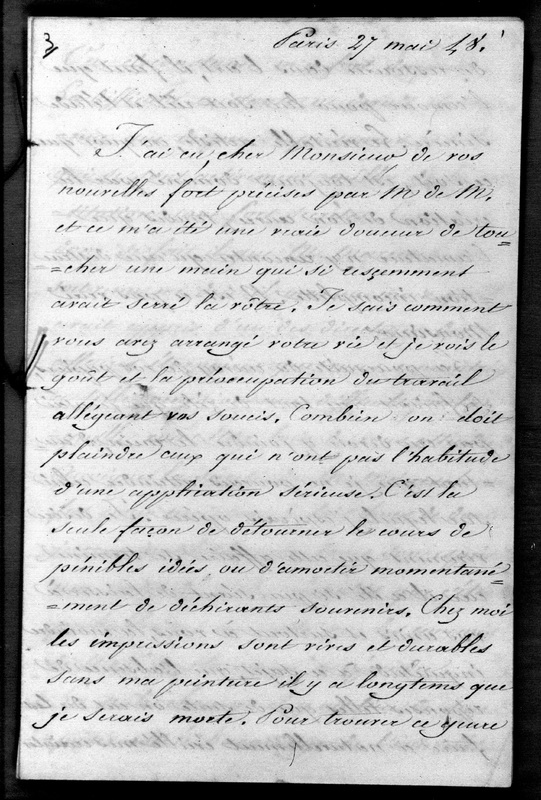 3/ Paris 27 mai 48.
J'ai eu, cher Monsieur, de vos
nouvelles fort précises par M de M.
et ce m'a été une vraie douceur de tou=
=cher une main qui si resçemment
avait serré la vôtre. Je sais comment
vous avez arrangé votre vie et je vois le
goût et la préocupation du travail
allégeant vos soucis. Combien on doit
plaindre ceux qui n'ont pas l'habitude
d'une application sérieuse. C'est la
seule façon de détourner le cours de
pénibles idées ou d'amortir momentané=
=ment de déchirants souvenirs. Chez moi
les impressions sont vives et durables
sans ma peinture il y a longtems que
je serais morte. Pour trouver ce